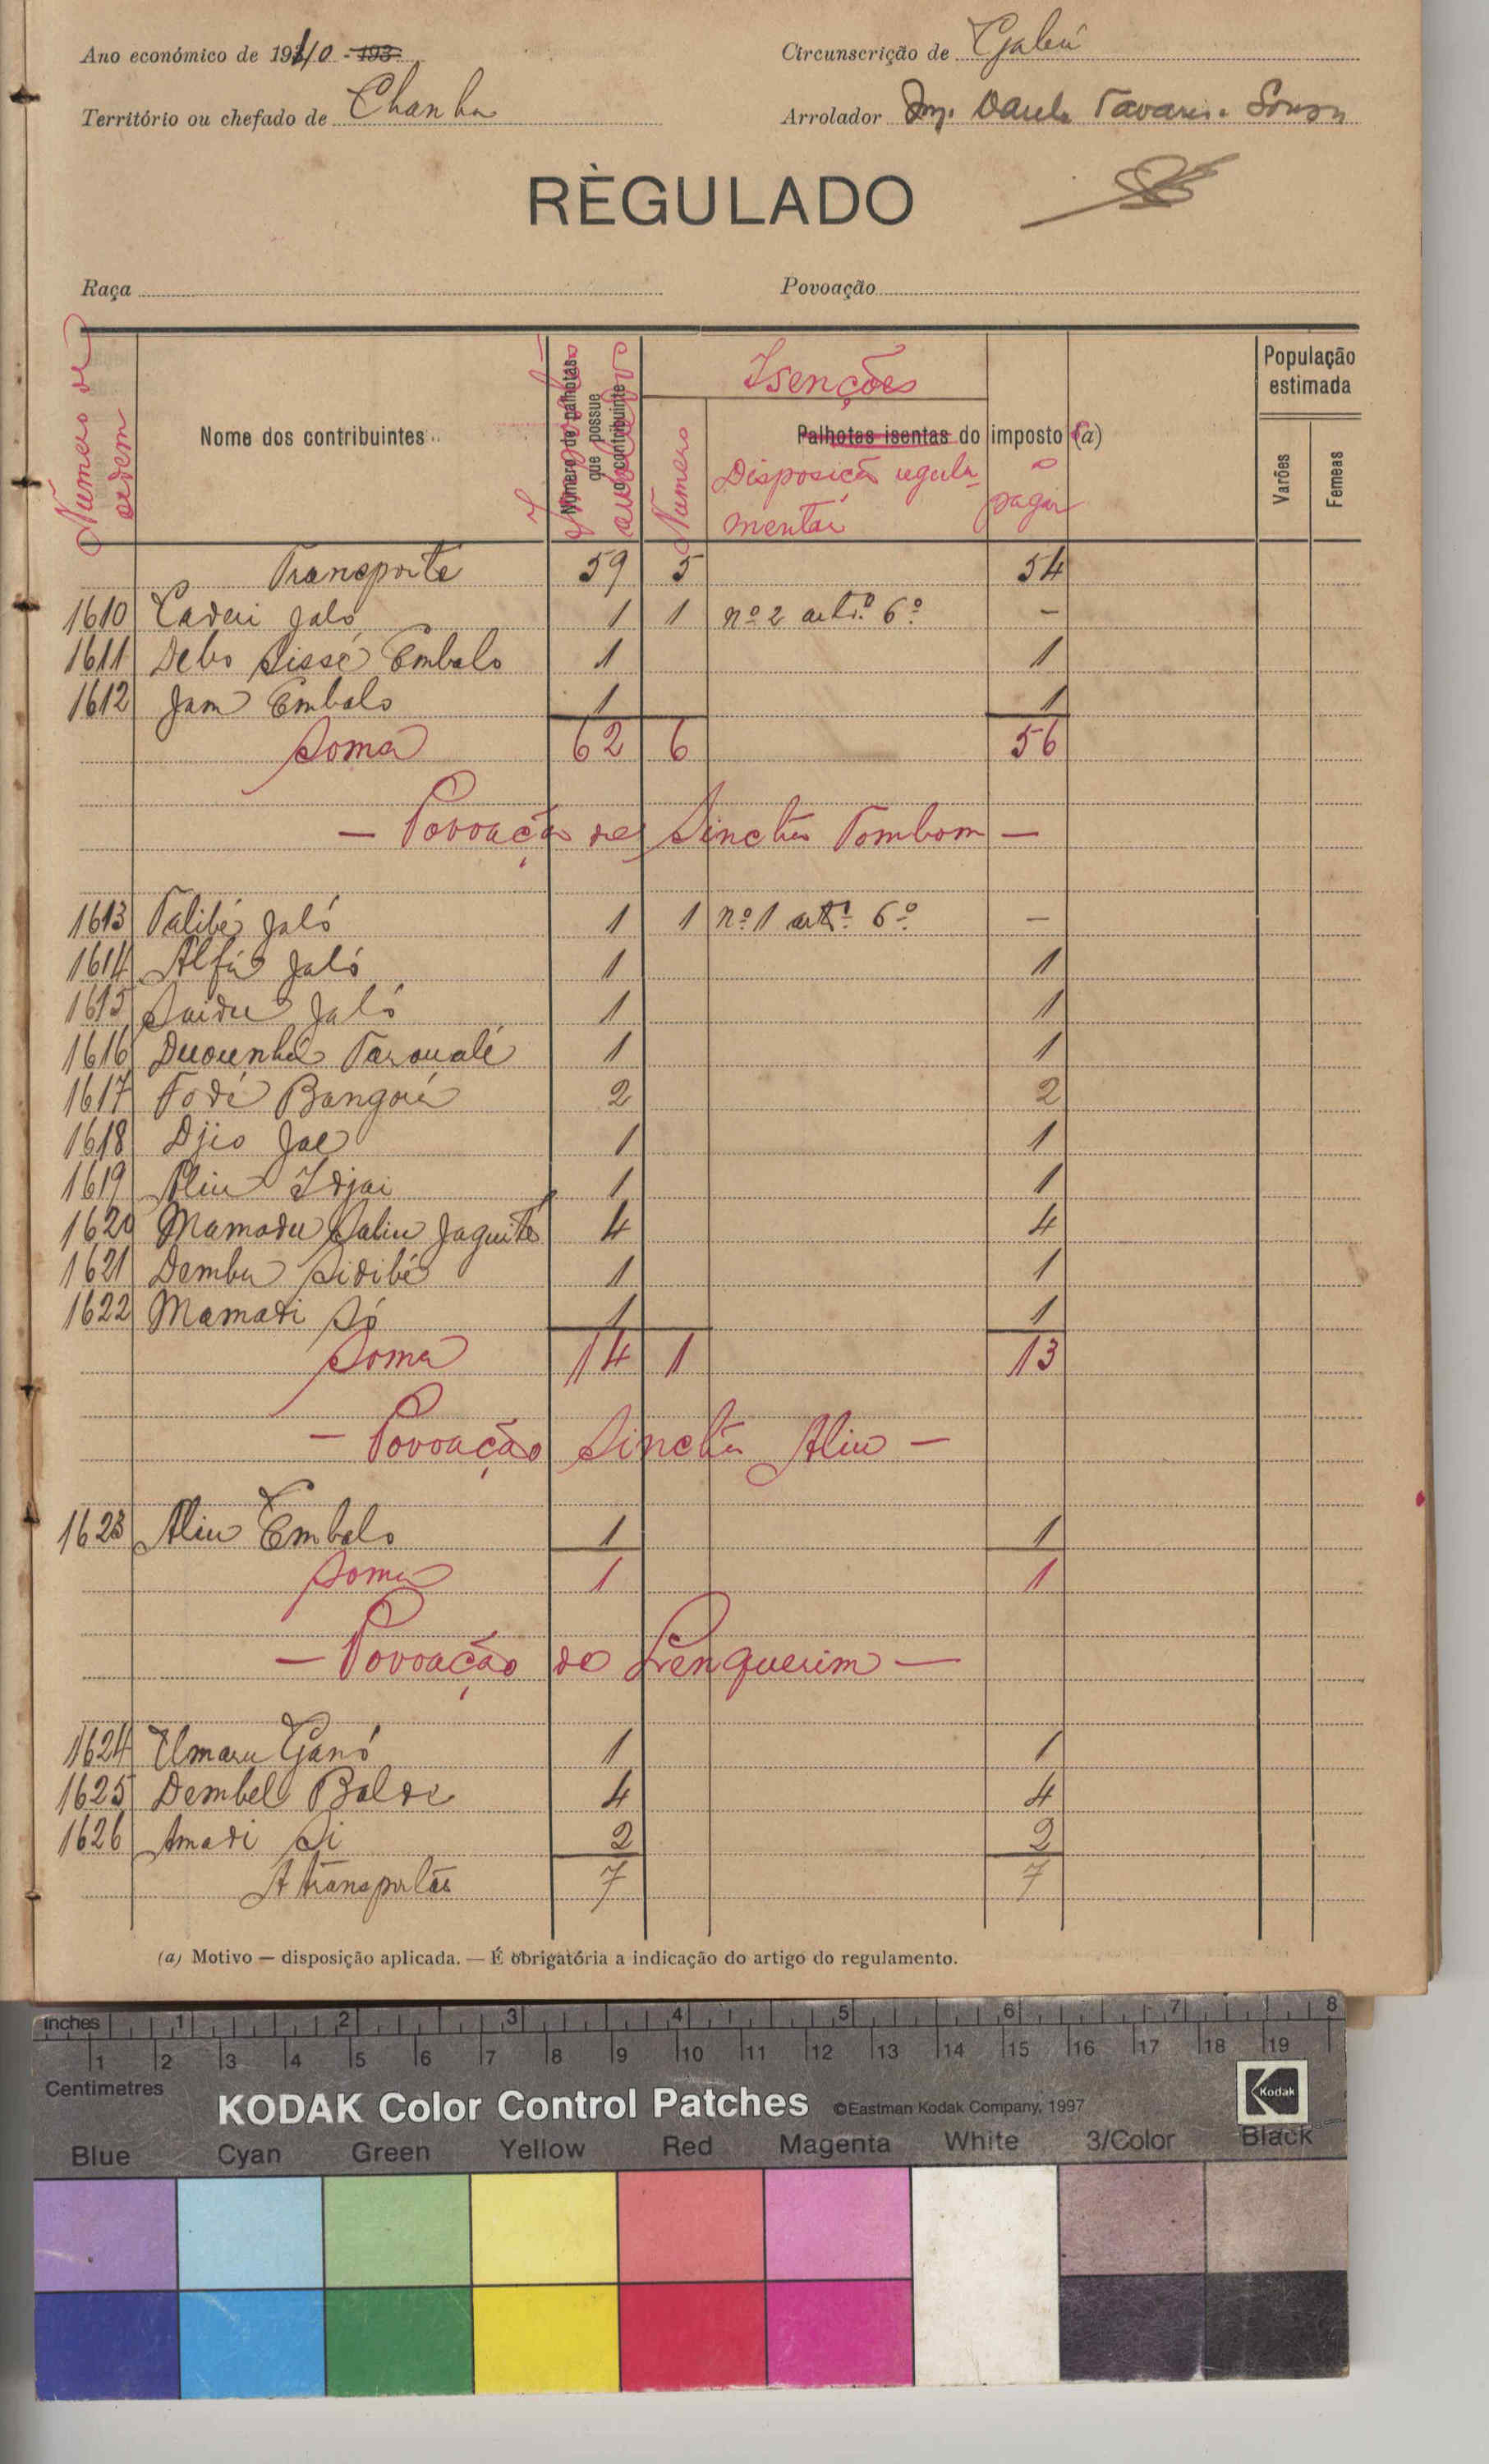 Ano económico de 1940 - 193
Circunscrição de Gabú
Território ou chefado de Chanha
Arrolador Tavares Sousa
RÈGULADO
Raça
Povoação
Numero de ordem
Nome dos contribuintes
Número de palhotas que possue o contribuinte
Isenções
Numero
Palhotas isentas do imposto (a)
Disposição regulamentar
a pagar
População estimada
Varões
Femeas
Transporte 59 5 54
1610 Jaló 1 1 nº 2 artº 6º -
1611 Debo Sissé Embalo 1 1
1612 Jam Embalo 1 1
Soma 62 6 56
- Povoação de Sinchã Tombom -
1613 Talibé Jaló 1 1 nº 1 artº 6º -
1614 Alfá Jaló 1 1
1615 Saidu Jaló 1 1
1616 1 1
1617 Fodé Bangorá 2 2
1618 Djio Jae 1 1
1619 Aliu Idjai 1 1
1620 Mamadu Saliu Jaquité 4 4
1621 Demba Sidibé 1 1
1622 Mamadi Só 1 1
Soma 14 1 13
- Povoação Sinchã Aliu -
1623 Aliu Embalo 1 1
Soma 1 1
- Povoação de Lenquerim -
1624 Umaru Ganó 1 1
1625 Dembel Balde 4 4
1626 Amadi Si 2 2
A transportar 7 7
(a) Motivo — disposição aplicada. — É obrigatória a indicação do artigo do regulamento.
inches 1 2 3 4 5 6 7 8
1 2 3 4 5 6 7 8 9 10 11 12 13 14 15 16 17 18 19
Centimetres
KODAK Color Control Patches ©Eastman Kodak Company, 1997 Kodak
Blue Cyan Green Yellow Red Magenta White 3/Color Black